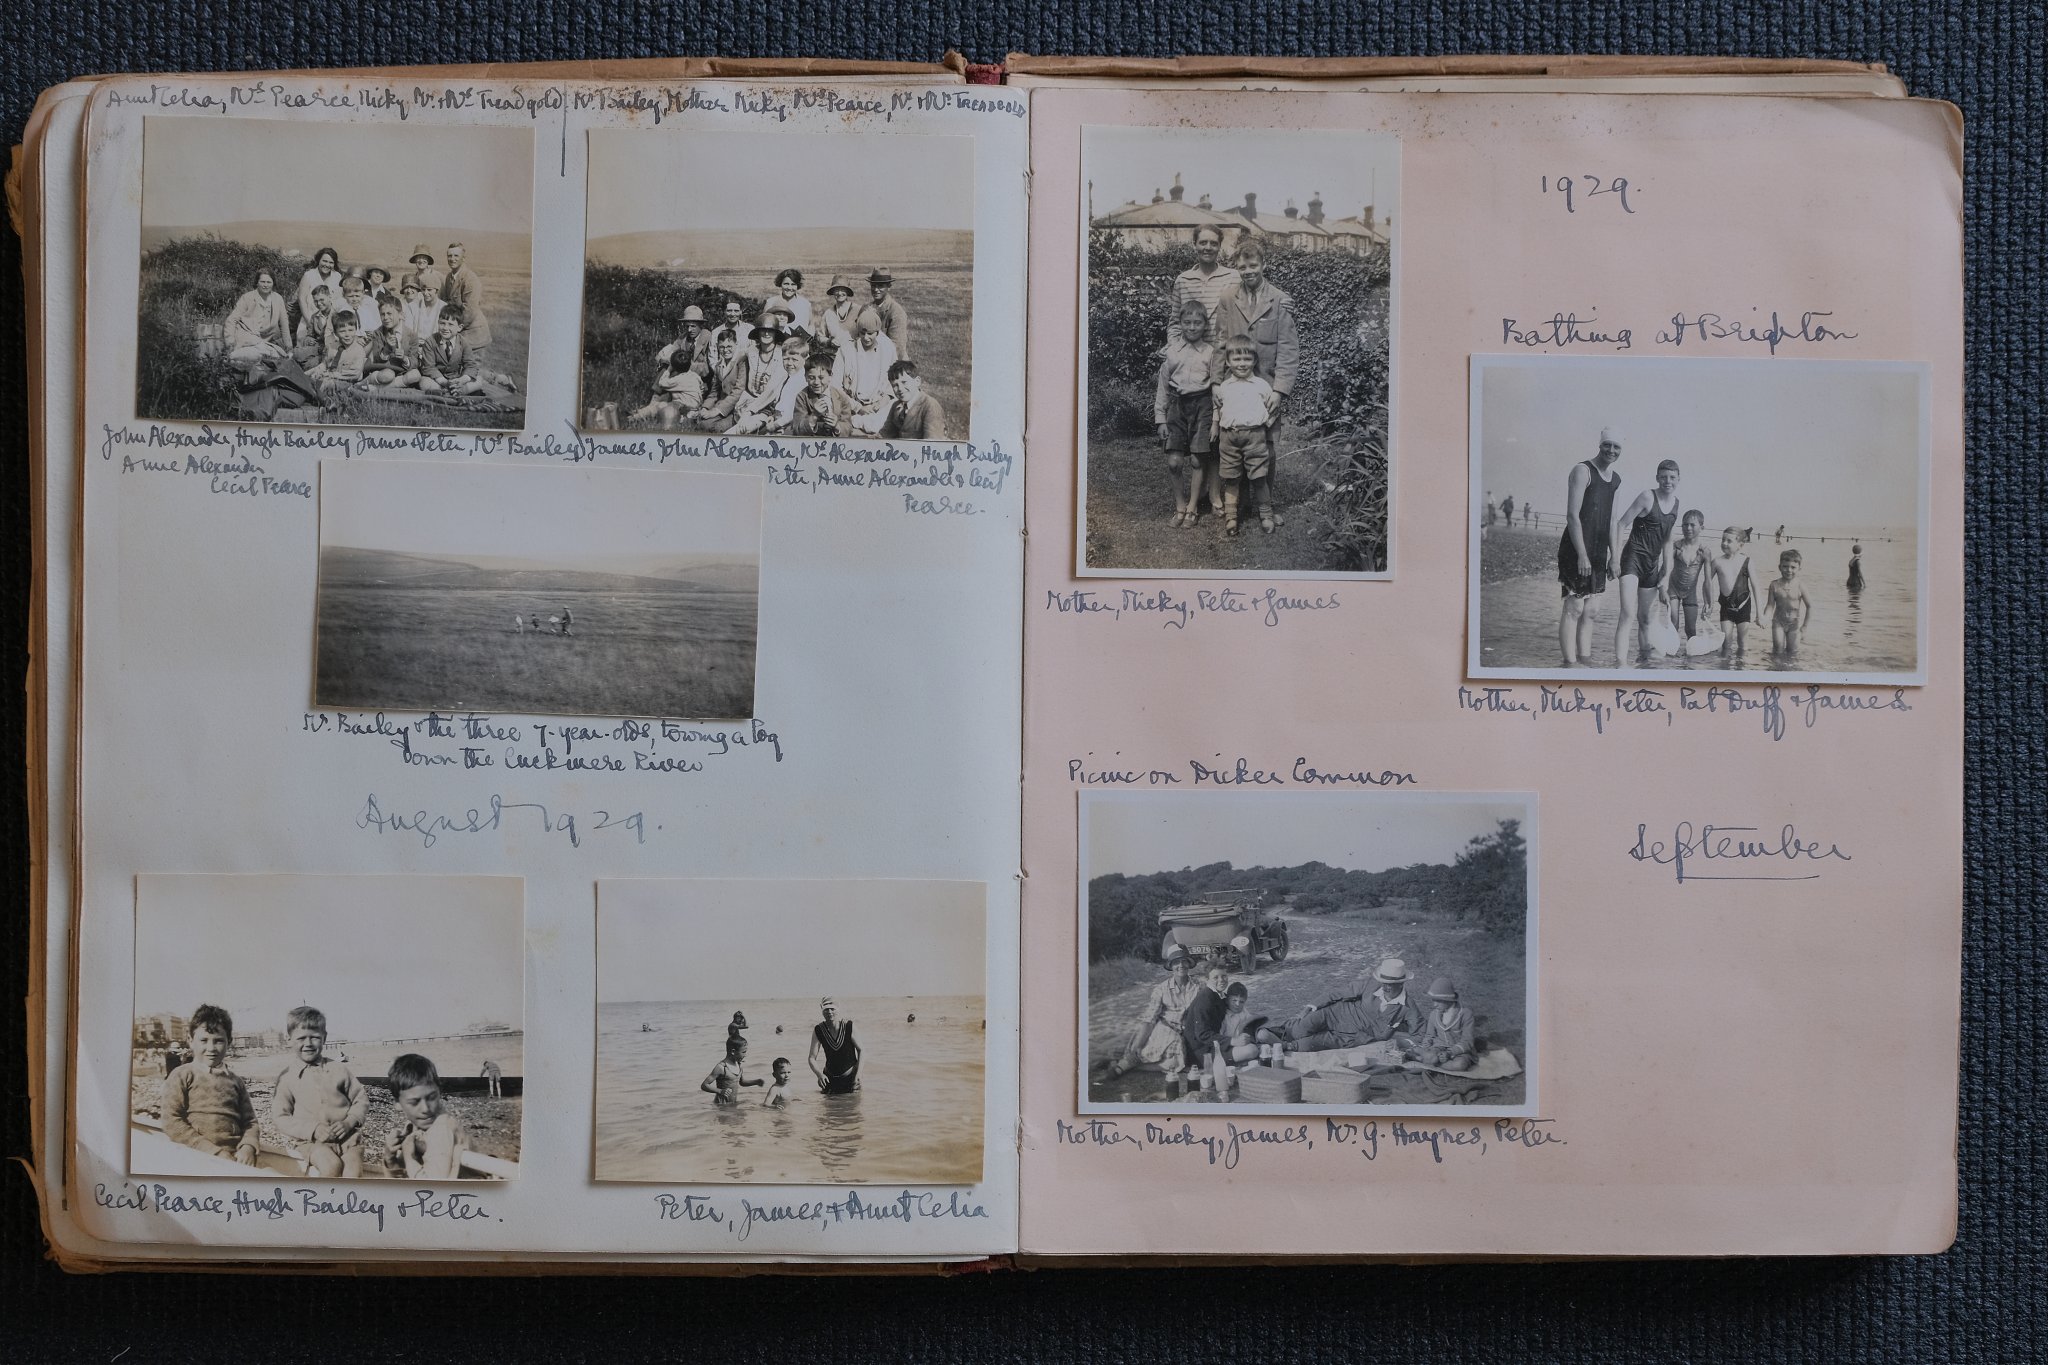 Aunt Celia, Mrs Pearce, Micky, Mr. & Mrs Treadgold
Mr. Bailey, Mother, Micky, Mrs Pearce, Mr. & Mrs TREADGOLD
John Alexander, Hugh Bailey, James & Peter, Mrs Bailey
Anne Alexander
Cecil Pearce
James, John Alexander, Mrs Alexander, Hugh Bailey
Peter, Anne Alexander & Cecil
Pearce.
Mr. Bailey & the three 7-year-olds, towing a log
down the Cuckmere River
August 1929.
Cecil Pearce, Hugh Bailey & Peter.
Peter, James, & Aunt Celia
1929.
Mother, Micky, Peter & James
Bathing at Brighton
Mother, Micky, Peter, Pat Duff & James.
Picnic on Dicker Common
September
Mother, Micky, James, Mr. G. Haynes, Peter.